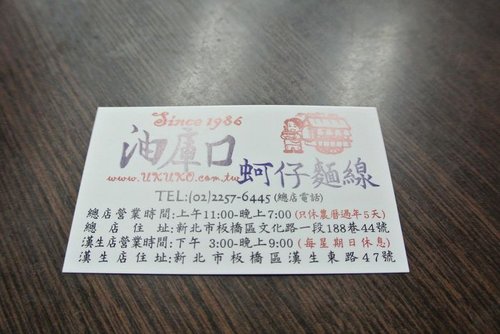 Since 1986
油庫口
www.UKUKO.com.tw
蚵仔麵線
TEL:(02)2257-6445 (總店電話)
總店營業時間:上午11:00-晚上7:00 (只休農曆過年5天)
總店住址:新北市板橋區文化路一段188巷44號
漢生店營業時間:下午 3:00-晚上9:00 (每星期日休息)
漢生店住址:新北市板橋區漢生東路47號